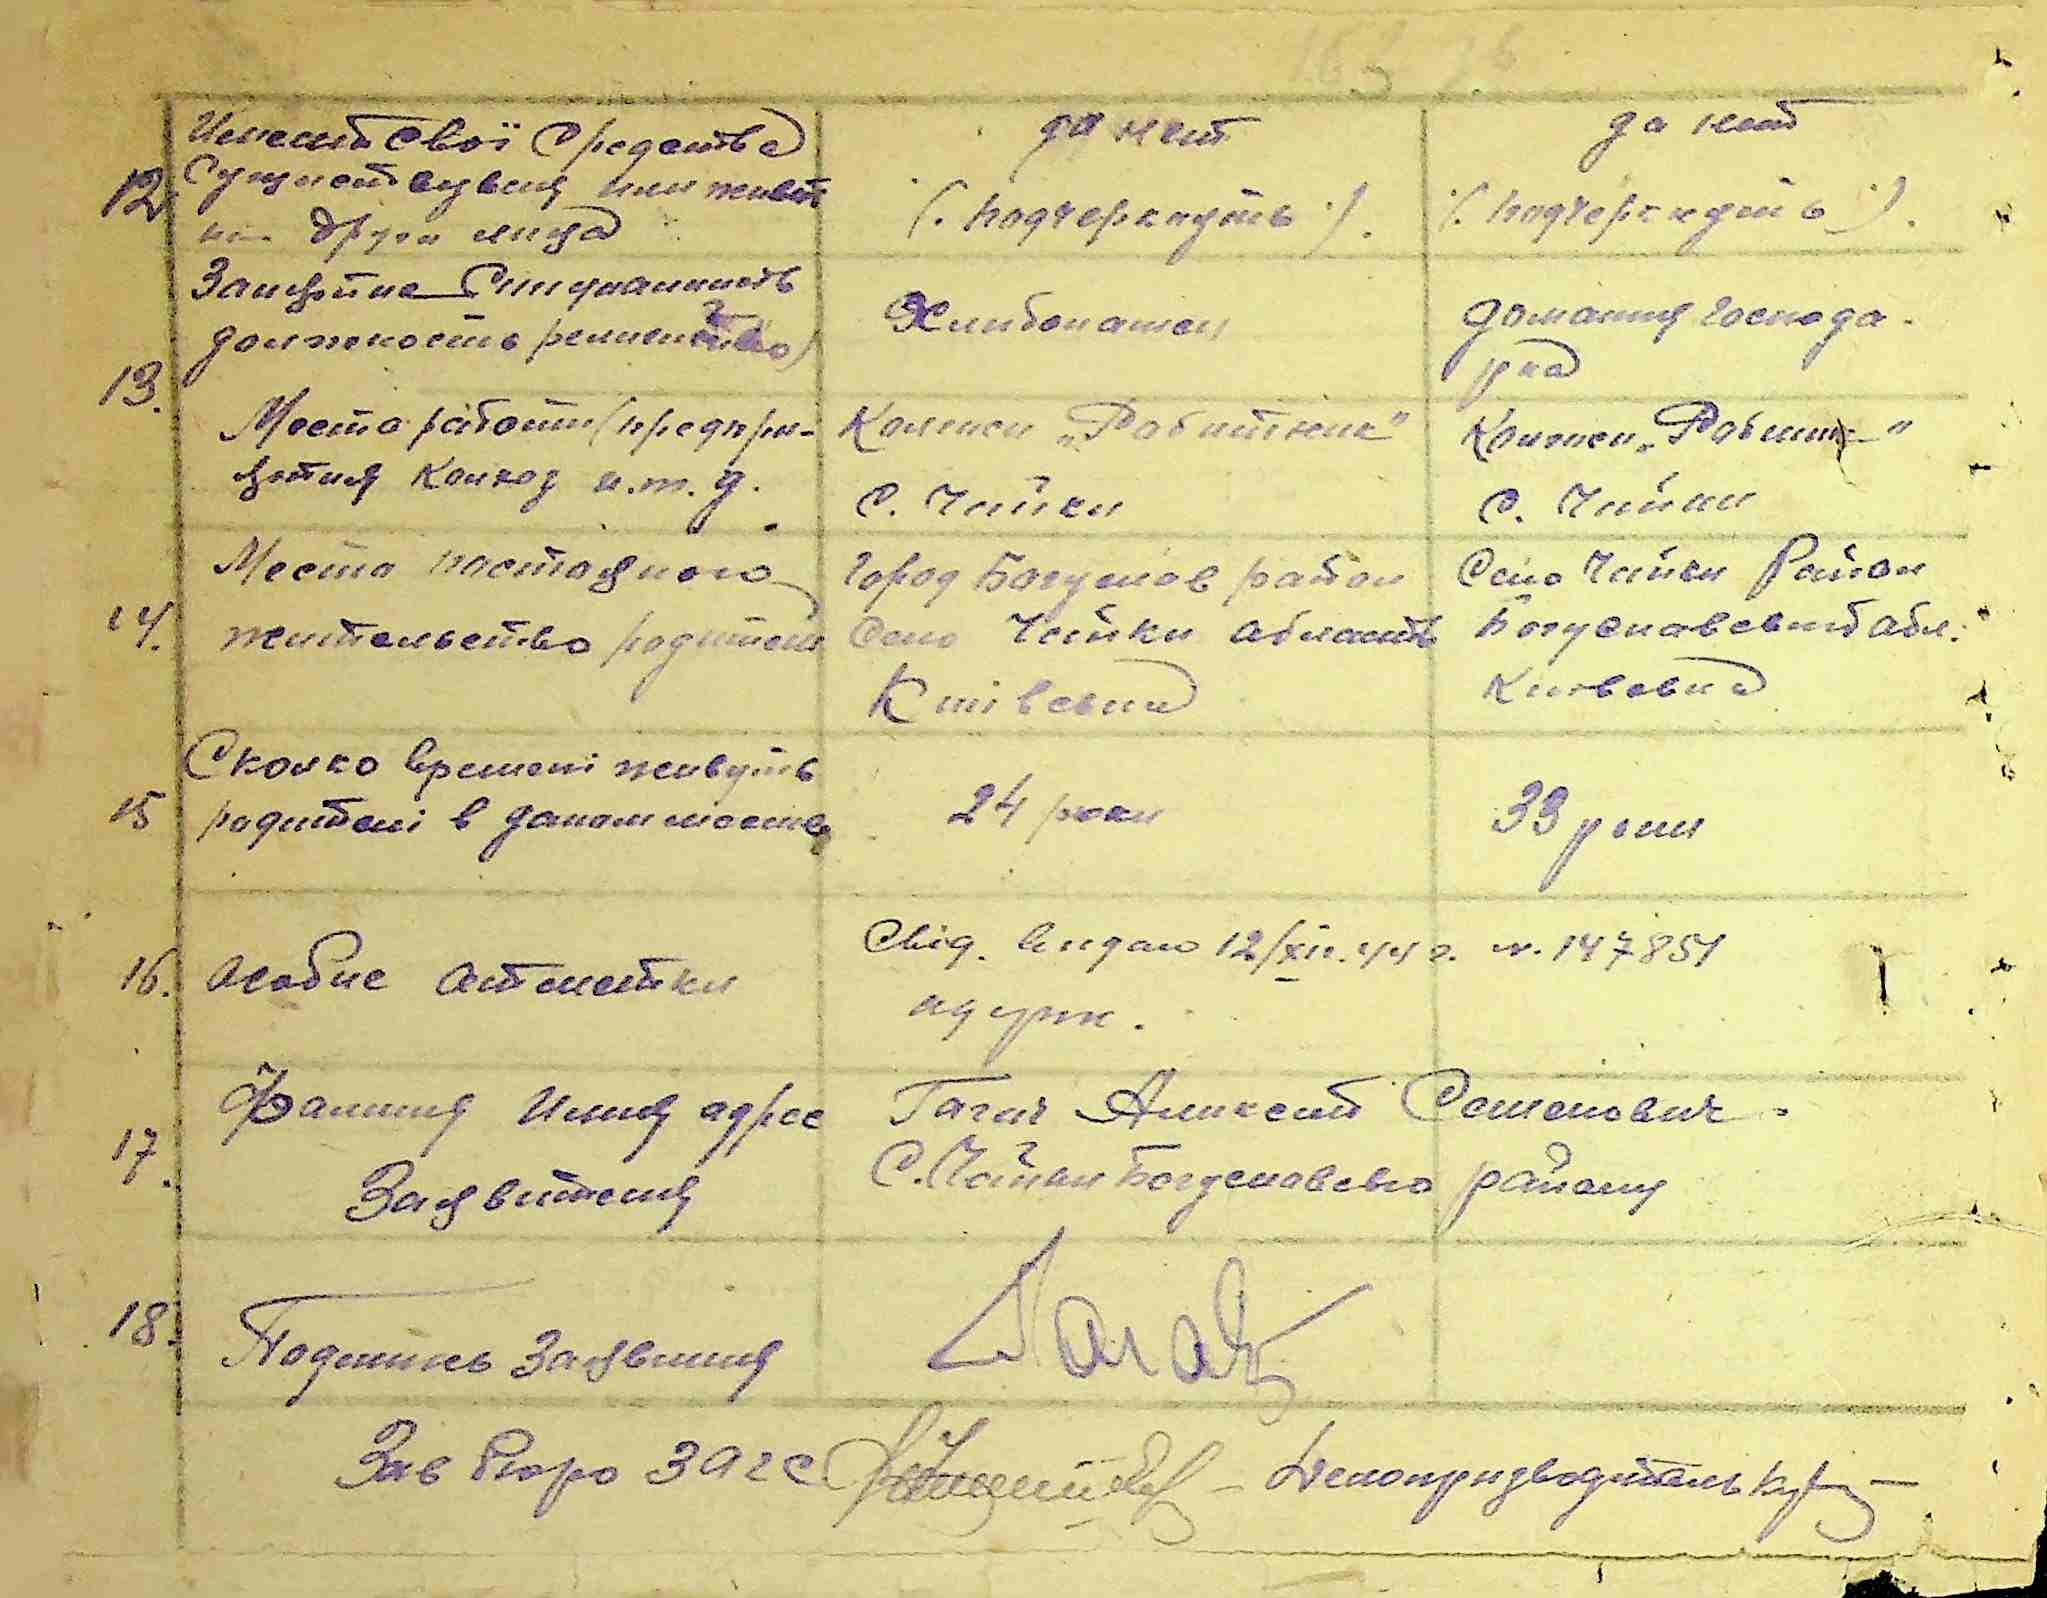 12. Имеит свої средства
существувыня или живет
на други лица
да нет
(подчеркнуть).
да нет
(подчеркнуть).
13. Занятие
должность
Хлибопашец
домашня господа-
рка
Место работи (предпри-
ятия колход и.т.д.
Колхоз „Робитник"
с. Чайки
Колхоз „Робитник"
с. Чайки
14. Место постояного
жительство родителя
Город Богуслав район
Село Чайки абласть
Київська
Село Чайки Район
Богуславский абл.
Киевска
15 Сколко времені живуть
родителі в даном месте
24 роки
33 роки
16. Особие отметки
Свід. видано 12/XII.44 г. н. 147851
одерж.
17. Фамиля Имня адрес
Заявителя
Гагач Аликсей Семенович.
С. Чайки Богуславсько району
18. Подпись Заявиля
Зав бюро ЗАГС
Делопризводитель